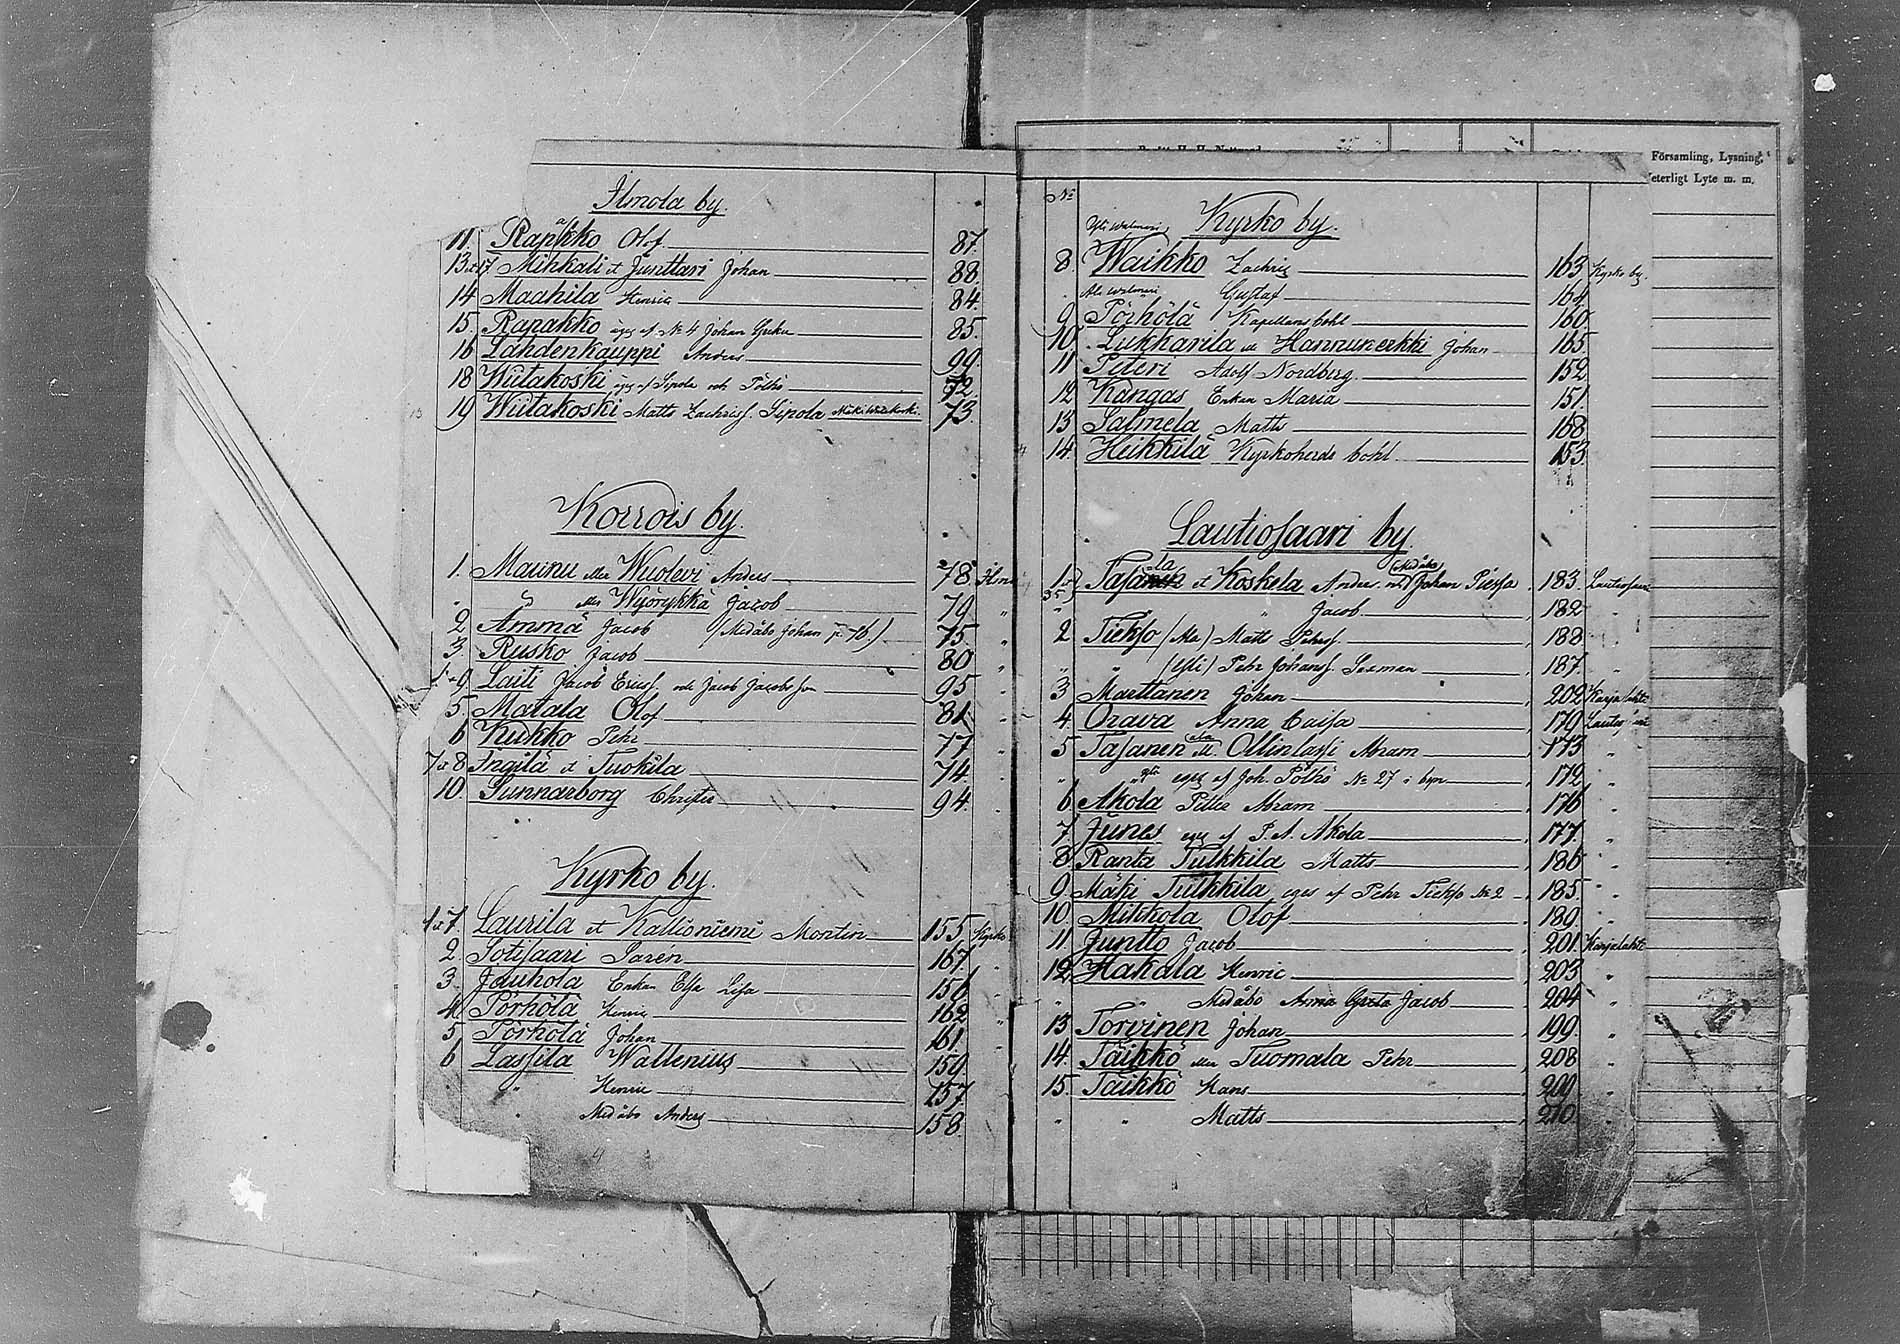 Ilmola by
11. Rapakko Olof 87.
13 et 17 Mihkali et Junttari Johan 88.
14 Maahila Henric 84.
15. Rapakko äges af No 4 Johan 85.
16 Lahdenkauppi Anders 99.
18 Wiitakoski äges af Sipola och Pölhö 72.
19 Wiitakoski Matts Zachriss. Sipola 73.
Korrois by.
1. Maunu eller Wuolevi Anders 78
" " eller Wyörykkä Jacob 79
2. Ämmä Jacob (Medäbo Johan p. 76.) 75
3 Rusko Jacob 80
Laiti Jacob Ericss. och Jacob Jacobsson 95
5 Matala Olof 81
6 Kukko Pehr 77
7 et 8 Ingilä et Tuokila 74.
10. Sunnarborg Christer 94
Kyrko by.
1 et 7 Laurila et Kallioniemi Montin 155 Kyrko
2. Sotisaari Sarén 167
3. Jauhola Enkan Elsa Lisa 156
4. Pörhölä Henric 162
5 Pörhölä Johan 161
6 Lassila Wallenius 159
" Henric 157
" Medäbo Anders 158
No
Kyrko by.
8. Waikko Zachris 163 Kyrko by.
Gustaf 164
9 Pörhölä Kapellans bohl 160
10. Lukkarila et Hannunerkki Johan 165
11 Peteri Adolf Nordberg 152
12 Kangas Enkan Maria 151
13 Salmela Matts 168
14. Heikkilä Kyrkoherde bohl 153.
Lautiosaari by
1 Tasala et Koskela Anders Johan Piessa 183. Lautiosaari
" Jacob 182
2 Tiekso (Ala) Matts Pehrss. 188
" " (Yli) Pehr Johanss. Sexman 187.
3 Marttanen Johan 202 Karjalahti
4 Orava Anna Caisa 179
5 Tasanen Ollinlassi Abram 173
" egs af Joh. Pölhö No 27 i byn 172
6 Akola Petter Abram 176
7 Junes egs af P. A. Akola 177.
8 Ranta Tulkkila Matts 186
9. Mäki Tulkkila eges af Pehr Tiekso No 2 185
10. Mitikola Olof 189
11 Juntto Jacob 201. Karjalahti
12 Hakala Henric 203
" " Medäbo Anna Greta Jacob 204
13 Torvinen Johan 199
14. Täikkö eller Tuomala Pehr 208
15. Täikkö Hans 209
" " Matts 210
Församling, Lysning,
Veterligt Lyte m. m.